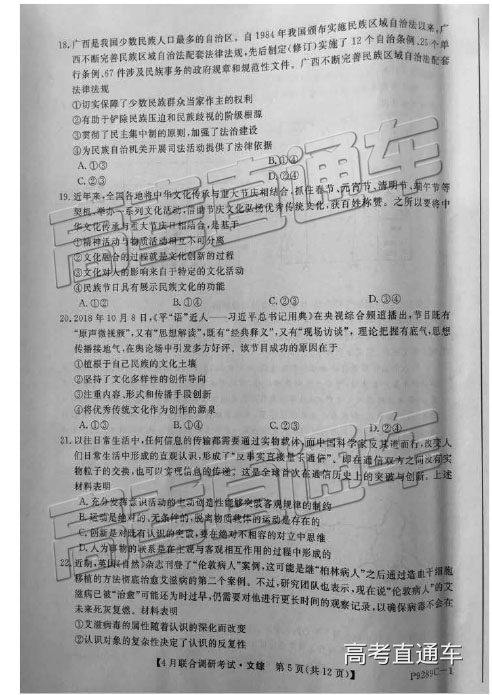 18. 广西是我国少数民族人口最多的自治区。自1984年我国颁布实施民族区域自治法以来,广
西不断完善民族区域自治法配套法律法规,先后制定(修订)实施了12个自治条例、25个单
行条例、67件涉及民族事务的政府规章和规范性文件。广西不断完善民族区域自治法配套
法律法规
①切实保障了少数民族群众当家作主的权利
②有助于铲除民族压迫和民族歧视的阶级根源
③贯彻了民主集中制的原则,加强了法治建设
④为民族自治机关开展司法活动提供了法律依据
A.①③ B.①④
C.②③ D.②④
19. 近年来,全国各地将中华文化传承与重大节庆相结合,抓住春节、元宵节、清明节、端午节等
契机,举办一系列文化活动,借助节庆文化弘扬优秀传统文化,获百姓称赞。之所以要将中
华文化传承与重大节庆日相结合,是基于
①精神活动与物质活动相互不可分离
②文化融合的过程就是文化创新的过程
③文化对人的影响来自于特定的文化活动
④民族节日具有展示民族文化的功能
A.①② B.①④ C.②③ D.③④
20. 2018年10月8日,《平“语”近人——习近平总书记用典》在央视综合频道播出,节目既有
“原声微视频”,又有“思想解读”,既有“经典释义”,又有“现场访谈”,理论把握有底气,思想
传播接地气,在舆论场中引发多方好评。该节目成功的原因在于
①植根于自己民族的文化土壤
②坚持了文化多样性的创作导向
③注重内容、形式和传播手段创新
④将优秀传统文化作为创作的源泉
A.①③ B.①④ C.②③ D.②④
21. 以往日常生活中,任何信息的传输都需要通过实物载体,而中国科学家反其道而行,改变人
们日常生活中形成的直观认识,形成了“反事实直接量子通信”,即在通信双方之间没有实
物粒子的交换,也可以实现信息的传递。这是全球首次在通信历史上的突破与创新。上述
材料表明
A. 充分发挥意识活动的主动创造性能够突破客观规律的制约
B. 运动是绝对的、无条件的,脱离物质载体的运动是存在的
C. 创新是对既有意识的突破,要在绝对不相容的对立中思维
D. 人为事物的联系是在主观与客观相互作用的过程中形成的
22. 近期,英国《自然》杂志刊登了“伦敦病人”案例,这可能是继“柏林病人”之后通过造血干细胞
移植的方法彻底治愈艾滋病的第二个案例。不过,研究团队也表示,现在说“伦敦病人”的艾
滋病已被“治愈”可能还为时过早,仍需要对他进行更长时间的观察记录,以确保病毒不会在
未来死灰复燃。材料表明
①艾滋病毒的属性随着认识的深化而改变
②认识对象的复杂性决定了认识的反复性
【4月联合调研考试·文综 第5页(共12页)】 P9289C—1
高考直通车
高考直通车
高考直通车